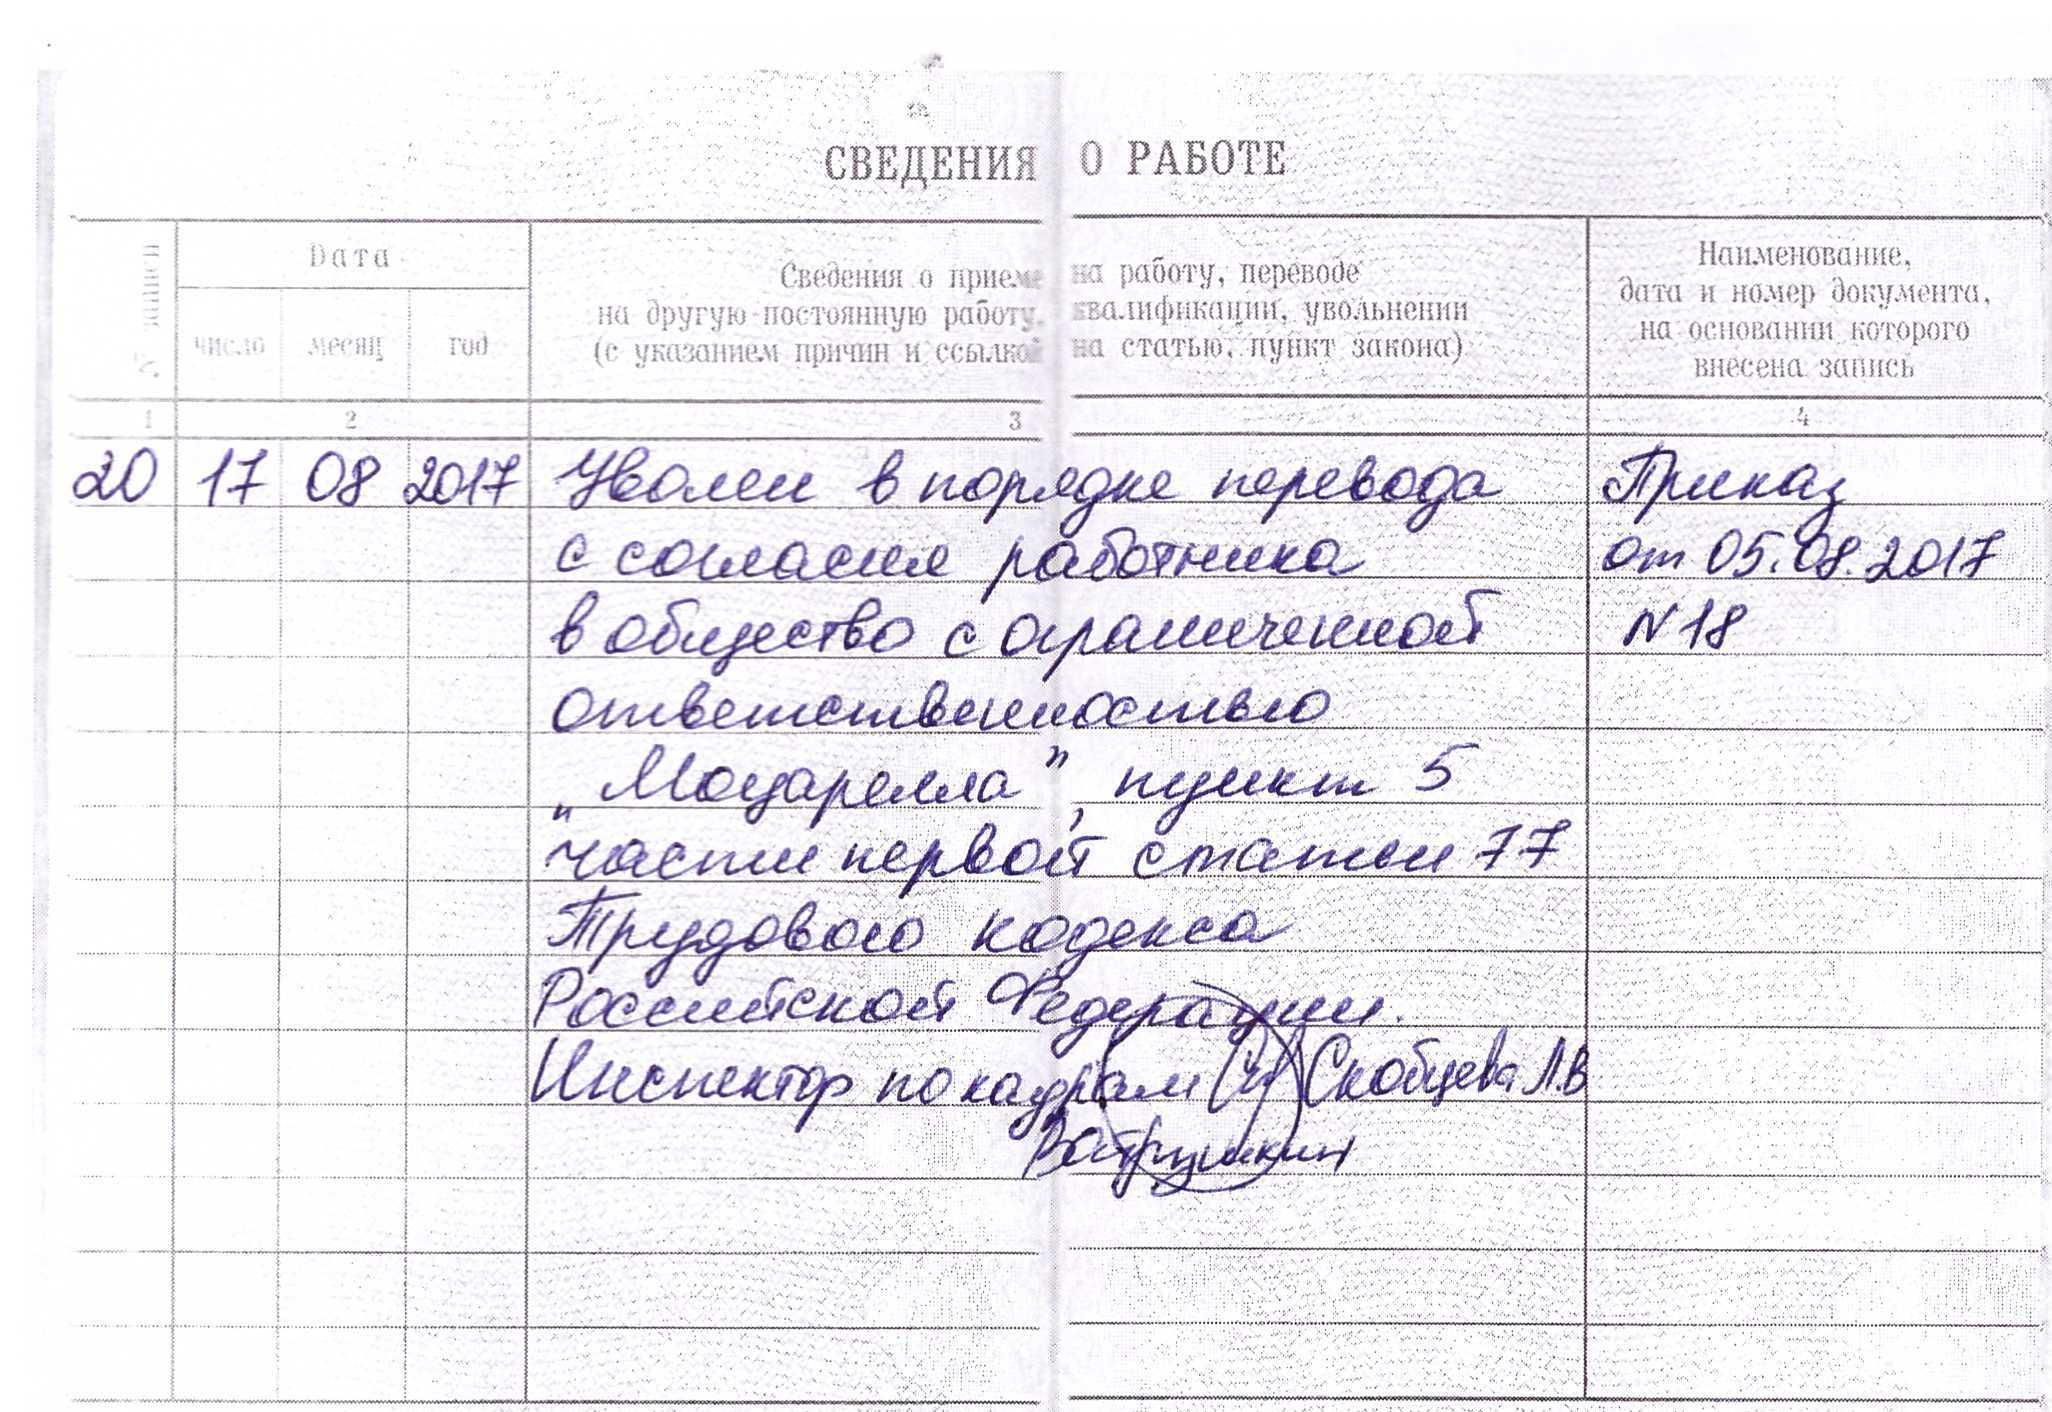 СВЕДЕНИЯ О РАБОТЕ
№ записи
Дата
число
месяц
год
Сведения о приеме на работу, переводе
на другую постоянную работу, квалификации, увольнении
(с указанием причин и ссылкой на статью, пункт закона)
Наименование,
дата и номер документа,
на основании которого
внесена запись
1 2 3 4
20 17 08 2017 Уволен в порядке перевода Приказ
с согласия работника от 05.08.2017
в общество с ограниченной N 18
ответственностью
„Моцарелла", пункт 5
части первой статьи 77
Трудового кодекса
Российской Федерации.
Инспектор по кадрам Скобцева Л.В
Ватрушкин